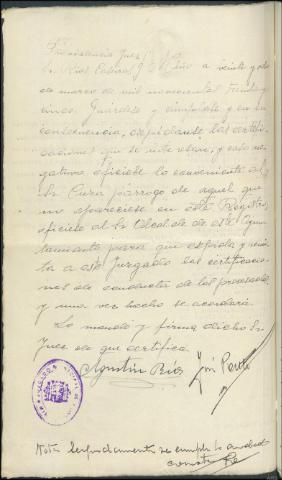 Providencia Juez
Sr. Ríos Cabeza a veinte y
de marzo de mil novecientos treinta y
cinco. Guárdese y cúmplase y en su
consecuencia, expídanse las certifi-
caciones que se interesan, y caso ne-
gativo ofíciese lo conveniente al
Sr. Cura párroco de aquel que
no apareciese en este Registro,
ofíciese al Sr. Alcalde de este Ayun-
tamiento para que expida y remi-
ta a este Juzgado las certificacio-
nes de conducta de los procesados
y una vez hecho se acordará.
Lo mandó y firma dicho Sr.
Juez de que certifico.
Agustín Ríos José
Nota Seguidamente se cumple lo acordado